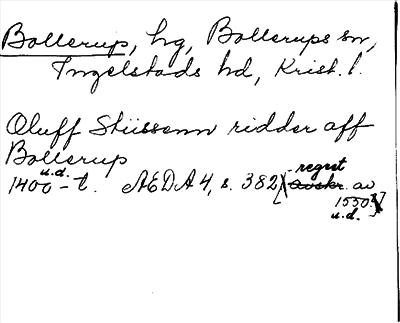 Bollerup, hg, Bollerups sn,
Ingelstads hd, Krist. l.
Oluff Stiissenn ridder aff
Bollerup
u.d. - regest
1400-t. AEDA 4, s. 382 [avskr. av
1550.]
u.d.